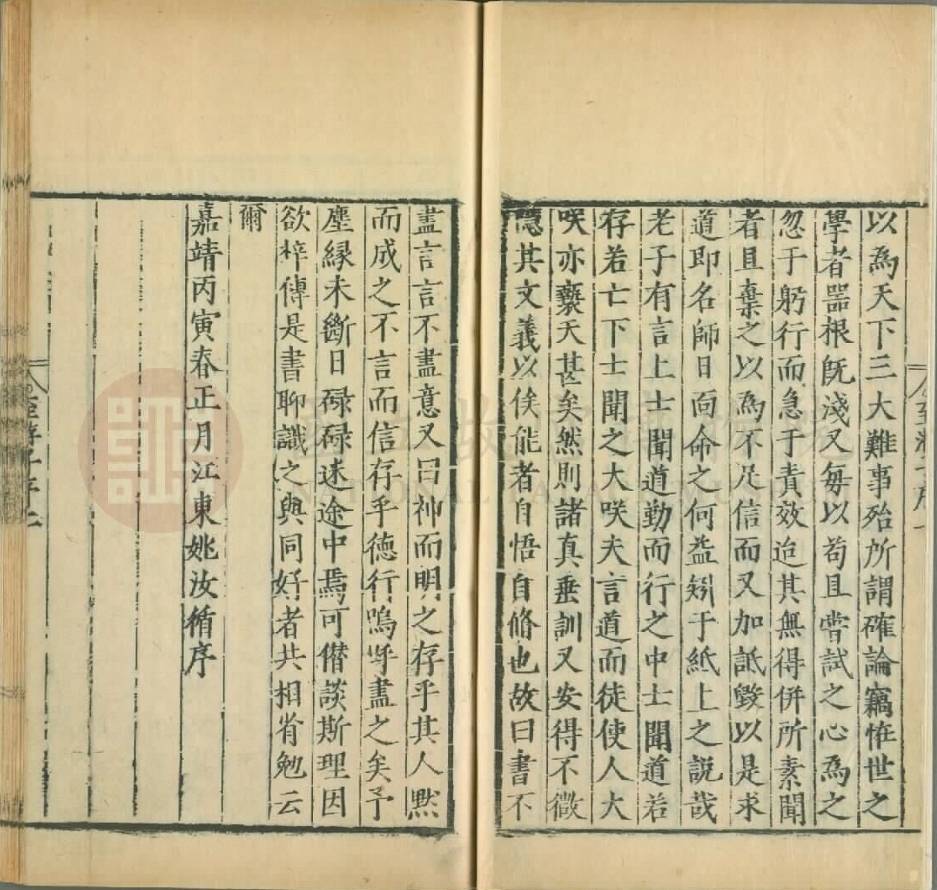 以為天下三大難事殆所謂確論竊恠世之
學者噐根旣淺又每以苟且嘗試之心為之
忽于躬行而急于責效迨其無得併所素聞
者且棄之以為不足信而又加詆毀以是求
道即名師日面命之何益矧于紙上之說哉
老子有言上士聞道勤而行之中士聞道若
存若亡下士聞之大咲夫言道而徒使人大
咲亦褻天甚矣然則諸真垂訓又安得不微
隱其文義以俟能者自悟自脩也故曰書不
盡言言不盡意又曰神而明之存乎其人黙
而成之不言而信存乎德行嗚呼盡之矣予
塵緣未斷日碌碌迷途中焉可僭談斯理因
欲梓傳是書聊識之與同好者共相省勉云
爾
嘉靖丙寅春正月江東姚汝循序